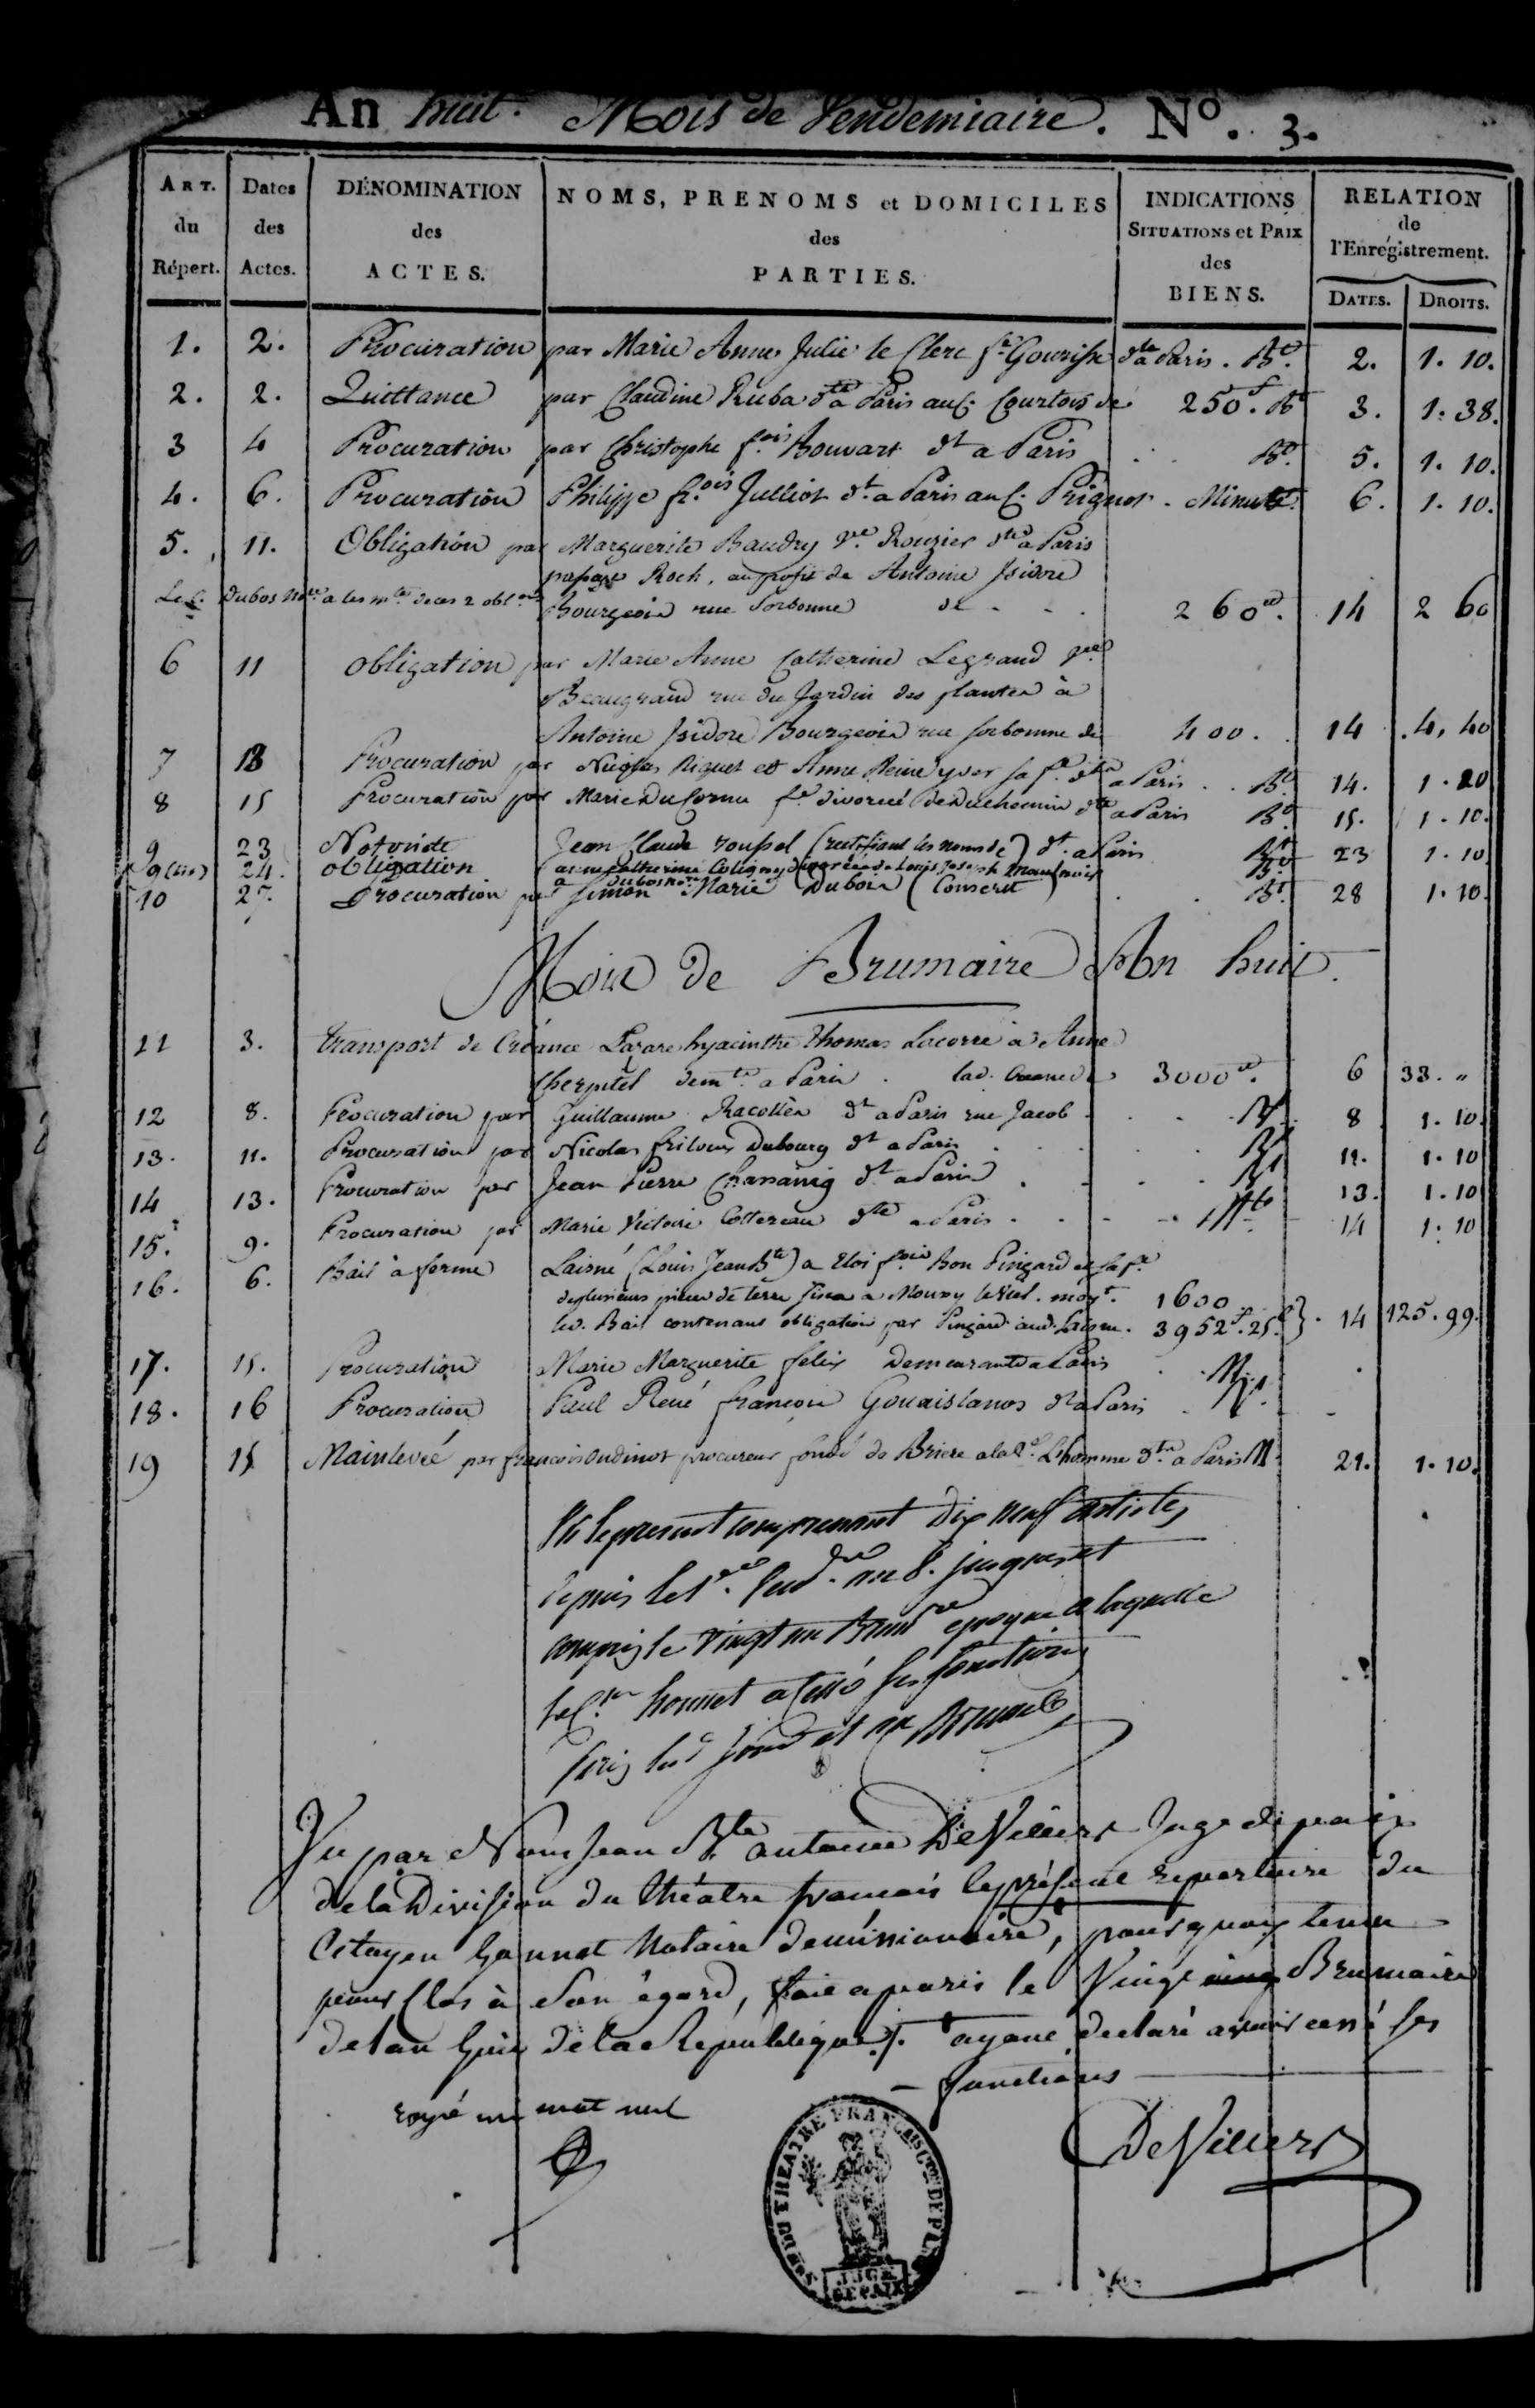 An huit. Mois de Vendemiaire. Nº. 3.
ART. du Répert.
Dates des Actes.
DÉNOMINATION des ACTES.
NOMS, PRENOMS et DOMICILES des PARTIES.
INDICATIONS SITUATIONS et PRIX des BIENS.
RELATION de l'Enregistrement.
DATES. DROITS.
1. 2. Procuration par Marie Anne Julie le Clerc fe. dte a Paris. Bt. 2. 1. 10.
2. 2. Quittance par Claudine Ruba dte a Paris au C. Courtois de 250f. Bt 3. 1. 38.
3 4 Procuration par Christophe fois. Bouvart dt a Paris Bt. 5. 1. 10.
4. 6. Procuration Philippe fr.ois Julliot dt. a Paris au C. Prignot. Minute. 6. 1. 10.
5. 11. Obligation par Marguerite Baudry ve. Rouzier dte a Paris
Roch, au profit de Antoine Isidore
Le C. Dubos Nore. a les mtes. de ces 2 oblons
Bourgeois rue Sorbonne de 260. 14 2 60
6 11 obligation par Marie Anne Catherine Legrand vve
Beaugrand rue du Jardin des plantes à
Antoine Isidore Bourgeois rue Sorbonne de 400. 14 4, 40
7 13 Procuration par Nicolas Riquet et Anne Reine yver sa fe. dtn a Paris Bt. 14. 1. 20
8 15 Procuration par Marie Du Cornu fe. divorcée de Duchemin dte a Paris Bt. 15. 1. 10.
9 23 Notoriété Jean Claude roussel (rectifiant les noms de) dt. a Paris Bt 23 1. 10
9(bis) 24. obligation anne catherine Coligny divorcée de Louis Joseph Bt.
a dubos nore
10 27. Procuration par Simon Marie Dubois (Conscrit) Bt. 28 1. 10.
Mois de Brumaire An huit.
11 3. Transport de Créance Lazare hyacinthe Thomas Lacorre à Anne
Cherpitel demte. a Paris. lad. Créance de 3000. 6 33. "
12 8. Procuration par Guillaume Racollèr dt a Paris rue Jacob Bt 8 1. 10
13. 11. Procuration par Nicolas Dubourg dt a Paris Bt 11. 1. 10
14 13. Procuration par Jean Pierre dt. a Paris Bt 13. 1. 10
15. 9. Procuration par Marie Victoire Cottereau dte a Paris Mte 14 1. 10
16. 6. Bail à ferme Laisné (Louis Jean Bte) a Eloi fois Bon Pingard et sa fe
de plusieurs pieces de terre sises a Moussy le Viel. moyt. 1600
led. Bail contenant obligation par Pingard aud. Laisné. 3952f. 25c }. 14 125. 99.
17. 15. Procuration Marie Marguerite felix Demeurante a Paris M
18. 16 Procuration Paul René françois dt a Paris
19 15 Mainlevée par francois Oudinot procureur fondé de Briere a la Ve. Lhomme dte. a Paris M 21. 1. 10.
Vu le present comprenant Dix neuf articles
depuis le 1er. Vendre. an 8. jusques et
compris le Vingt un Brumre epoque a laquelle
le Cen honnet a cessé ses fonctions
Paris led. jour
Vu par Nous Jean Bte. antoine DeVilliers Juge de paix
de la Division du théatre francais le présent repertoire du
Citoyen honnet Notaire démissionnaire, pourquoy tenu
pour clos à son égard, fait a paris le Vingt Brumaire
de lan huit de la Republique ./. ayant declaré avoir cessé ses
fonctions
rayé un mot nul
DeVilliers
DU THEATRE FRANCAIS
JUGE DE PAIX